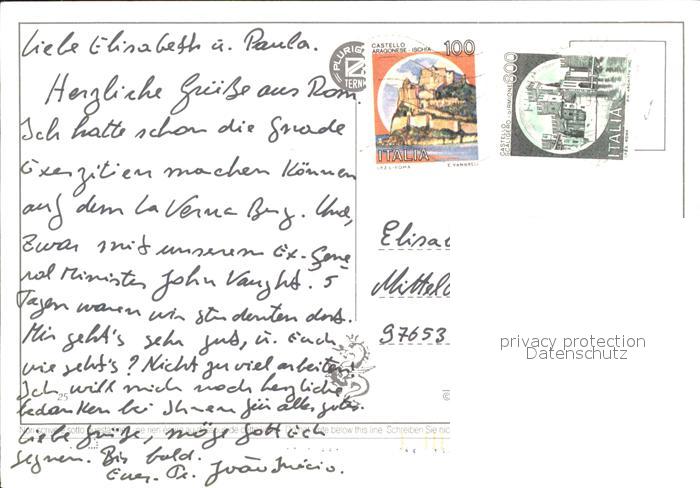 Liebe Elisabeth u. Paula.
Herzliche Grüße aus Rom.
Ich hatte schon die Gnade
Exerzitien machen Können
auf dem La Verna Berg. Und,
Zwar mit unserem Ex-Gene
ral Minister John Vaughn. 5
Tagen waren wir studenten dort.
Mir geht's sehr gut, u. Euch
wie geht's? Nicht zu viel arbeiten!
Ich will mich noch herzliche
bedanken bei Ihnen für alles gutes.
Liebe Grüße, möge Gott Euch
segnen. Bis bald.
Euer Fr. João Inácio.
25
PLURIG
CASTELLO
ARAGONESE - ISCHIA
100
ITALIA
I.P.Z.S. - ROMA
CASTELLO
SCALIGERO - SIRMIONE
ITALIA
Elisa
Mittel
97653
privacy protection
Datenschutz
below this line. Schreiben Sie nic